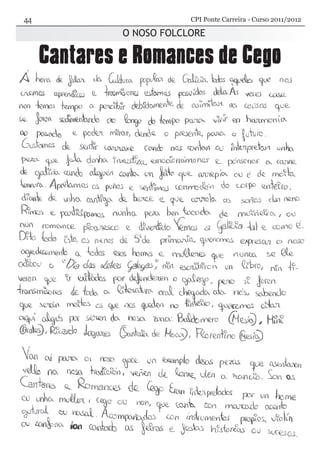 44
CPI Ponte Carreira - Curso 2011/2012
O NOSO FOLCLORE
Cantares e Romances de Cego
Á hora de falar da Cultura popular de Galicia todos aqueles que nos
cremos aprendices e transmisores estamos posuídos dela. Ás veces case
non temos tempo a percibir debidamente de asimilar as cousas que
se foron sedimentando ao longo do tempo para vivir en harmonía
co pasado e poder mirar, dende o presente, para o futuro.
Gustamos de sentir cando nos contan ou interpretan unha
peza que fala dunha emocionármonos e poñersenos a carne
de galiña cando alguén conta un feito que arrepía ou é de moita
tenrura. Apertamos os puños e sentimos conmoción do corpo enteiro,
diante de unha cantiga de berce e que arrola os soños dun neno.
Rimos e participamos nunha peza ben tocada de muiñeira, ou
nun romance picaresco e divertido. Vemos a Galicia tal e como é.
Dito todo isto, os nenos de 5º de primaria queremos expresar o noso
agradecemento a todos esos homes e mulleres que nunca se lle
adicou o "Día das Letras Galegas" nin escribiron un libro, nin ti-
veron que ir exiliados por defenderen o galego, pero si foron
transmisores de toda a literatura oral chegada ata nós; sabendo
que serán moitos os que nos queden no tinteiro, queremos citar
aquí algúns por seren da nosa zona: Baldomero (Mesía), Mini
Ricardo Lagares (Santalla de Moar), Florentino (Mesía)
Van aí para o noso goce un exemplo desas pezas que asentaron
vello na nosa tradición, veñen de lonxe, ulen a rancio. Son os
Cantares e Romances de Cego. Eran interpretados por un home
ou unha muller, cego ou non, que canta con marcado acento
gutural ou nasal. Acompañados con instrumentos propios, violín
ou zanfona ían contando as feiras e festas historias ou sucesos.